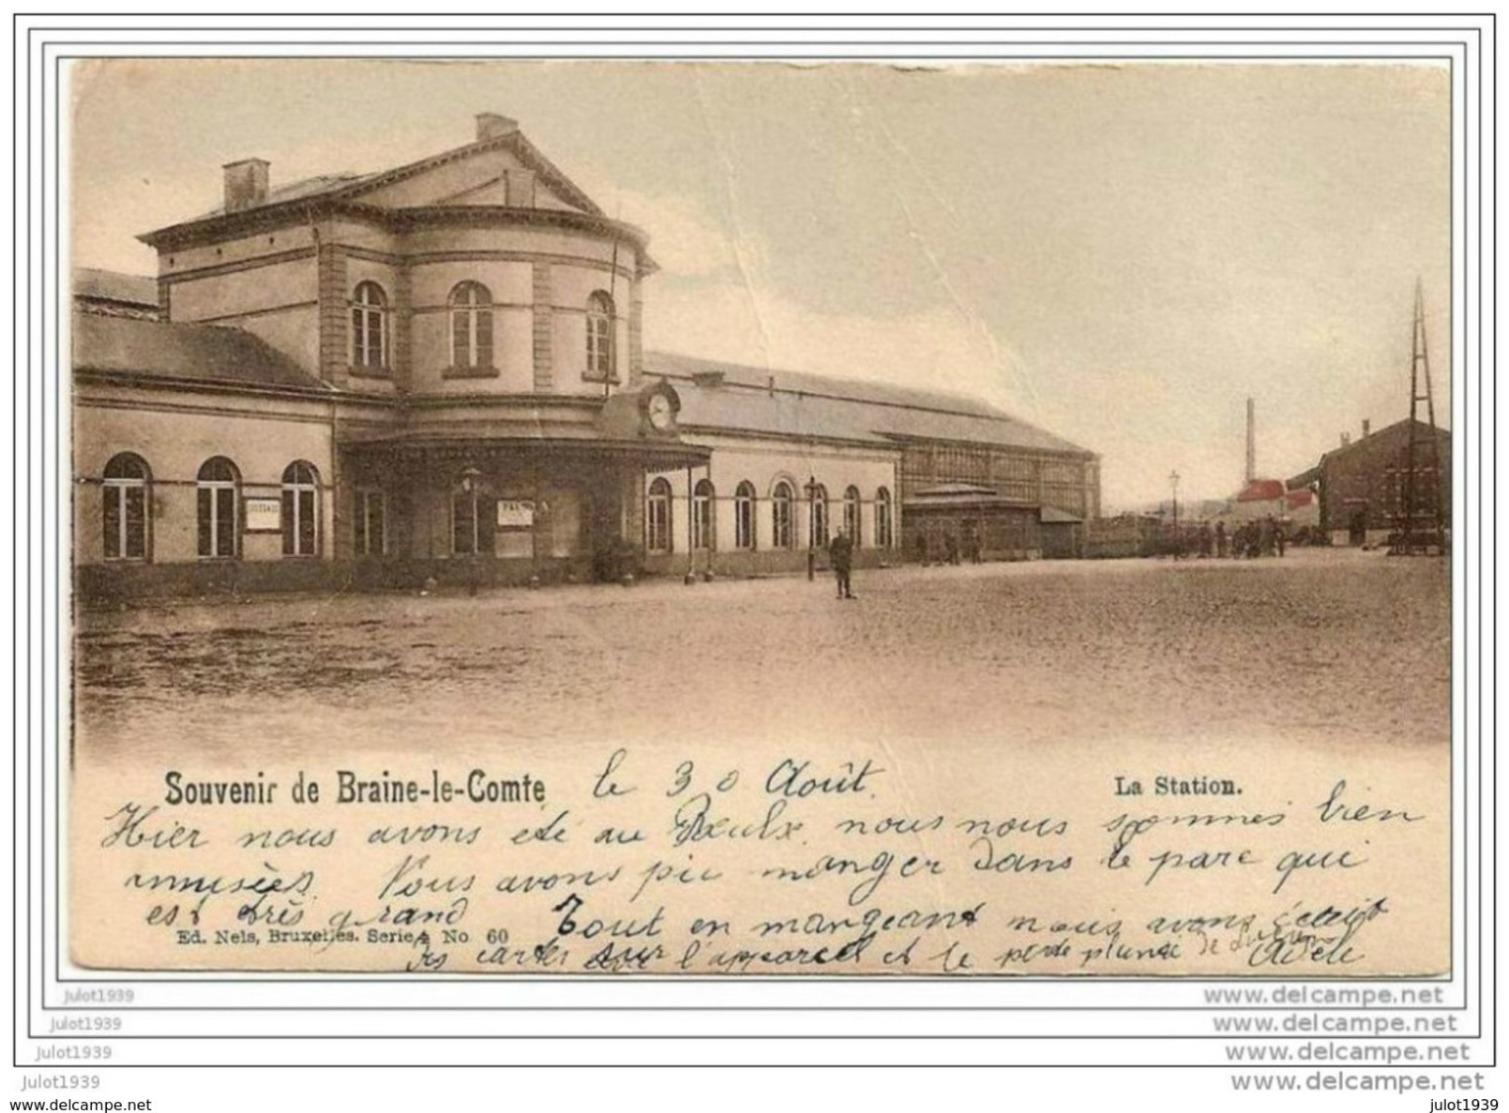 PA
Souvenir de Braine-le-Comte le 30 Août. La Station.
Hier nous avons été au Rœulx, nous nous sommes bien
amusées. Nous avons pu manger dans le parc qui
est très grand Tout en mangeant nous avons écrit
Ed. Nels, Bruxelles. Serie No 60
cartes sur l'appareil et le porte plume de
Adèle
julot1939
julot1939
julot1939
julot1939
www.delcampe.net
www.delcampe.net
www.delcampe.net
www.delcampe.net
www.delcampe.net
julot1939